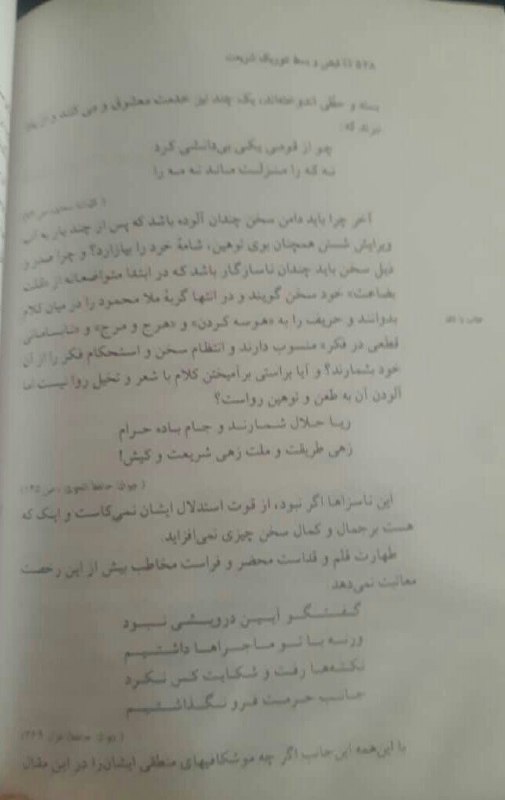 ۵۲۸ / قبض و بسط تئوریک شریعت
بسته و حظی اندوخته‌اند، یک چند نیز خدمت معشوق و می کنند و از
برند که:
چو از قومی یکی بی‌دانشی کرد
نه که را منزلت ماند نه مه را
(گلستان سعدی، ص
آخر چرا باید دامن سخن چندان آلوده باشد که پس از چند بار به آب
ویرایش شستن همچنان بوی توهین، شامهٔ خرد را بیازارد؟ و چرا صدر و
ذیل سخن باید چندان ناسازگار باشد که در ابتدا متواضعانه از «قلت
بضاعت» خود سخن گویند و در انتها گربهٔ ملا محمود را در میان کلام
بدوانند و حریف را به «هوسه کردن» و «هرج و مرج» و «نابسامانی
قطعی در فکر» منسوب دارند و انتظام سخن و استحکام فکر را از آن
خود بشمارند؟ و آیا براستی برآمیختن کلام با شعر و تخیل روا نیست اما
آلودن آن به طعن و توهین رواست؟
ربا حلال شمارند و جام باده حرام
زهی طریقت و ملت زهی شریعت و کیش!
(دیوان حافظ
این ناسزاها اگر نبود، از قوت استدلال ایشان نمی‌کاست و اینک که
هست بر جمال و کمال سخن چیزی نمی‌افزاید.
طهارت قلم و قداست محضر و فراست مخاطب بیش از این رخصت
معاتبت نمی‌دهد.
گفتگو آیین درویشی نبود
ورنه با تو ماجراها داشتیم
نکته‌ها رفت و شکایت کس نکرد
جانب حرمت فرو نگذاشتیم
(دیوان حافظ
با این‌همه این‌جانب اگر چه موشکافیهای منطقی ایشان را در این مقال